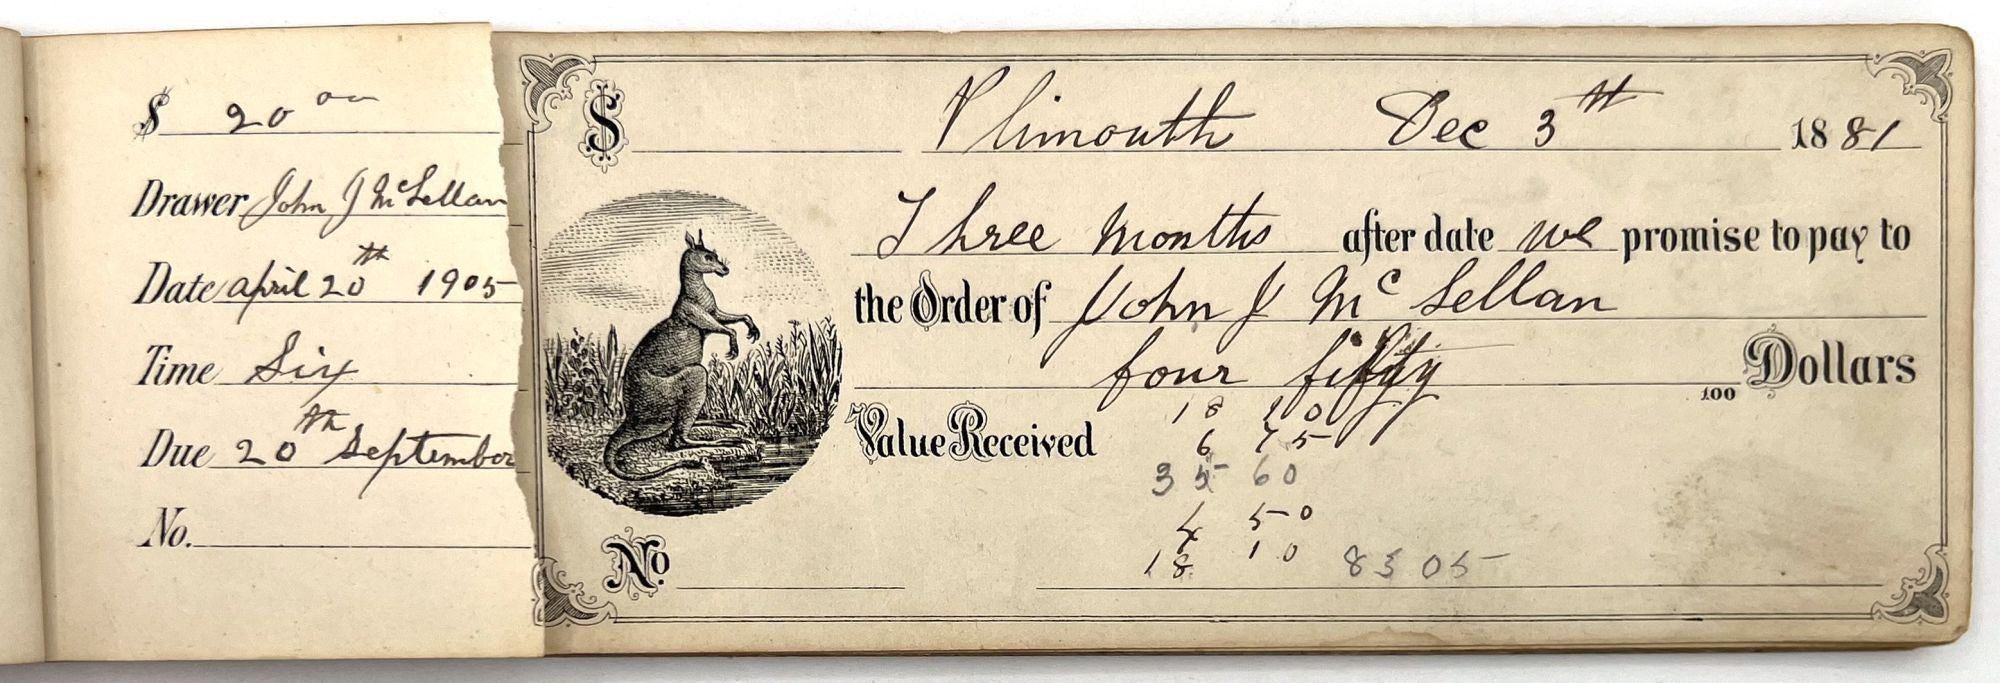 $ 20 00
Drawer John J McLellan
Date april 20th 1905
Time Six
Due 20th September
No.
$ Plimouth Dec 3th 1881
Three months after date we promise to pay to
the Order of John J McLellan
four fifty 100 Dollars
Value Received
18 20
6 75
35 60
4 50
18 10 83 05
No.